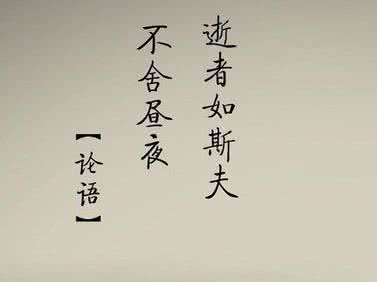 逝者如斯夫
不舍昼夜
【论语】